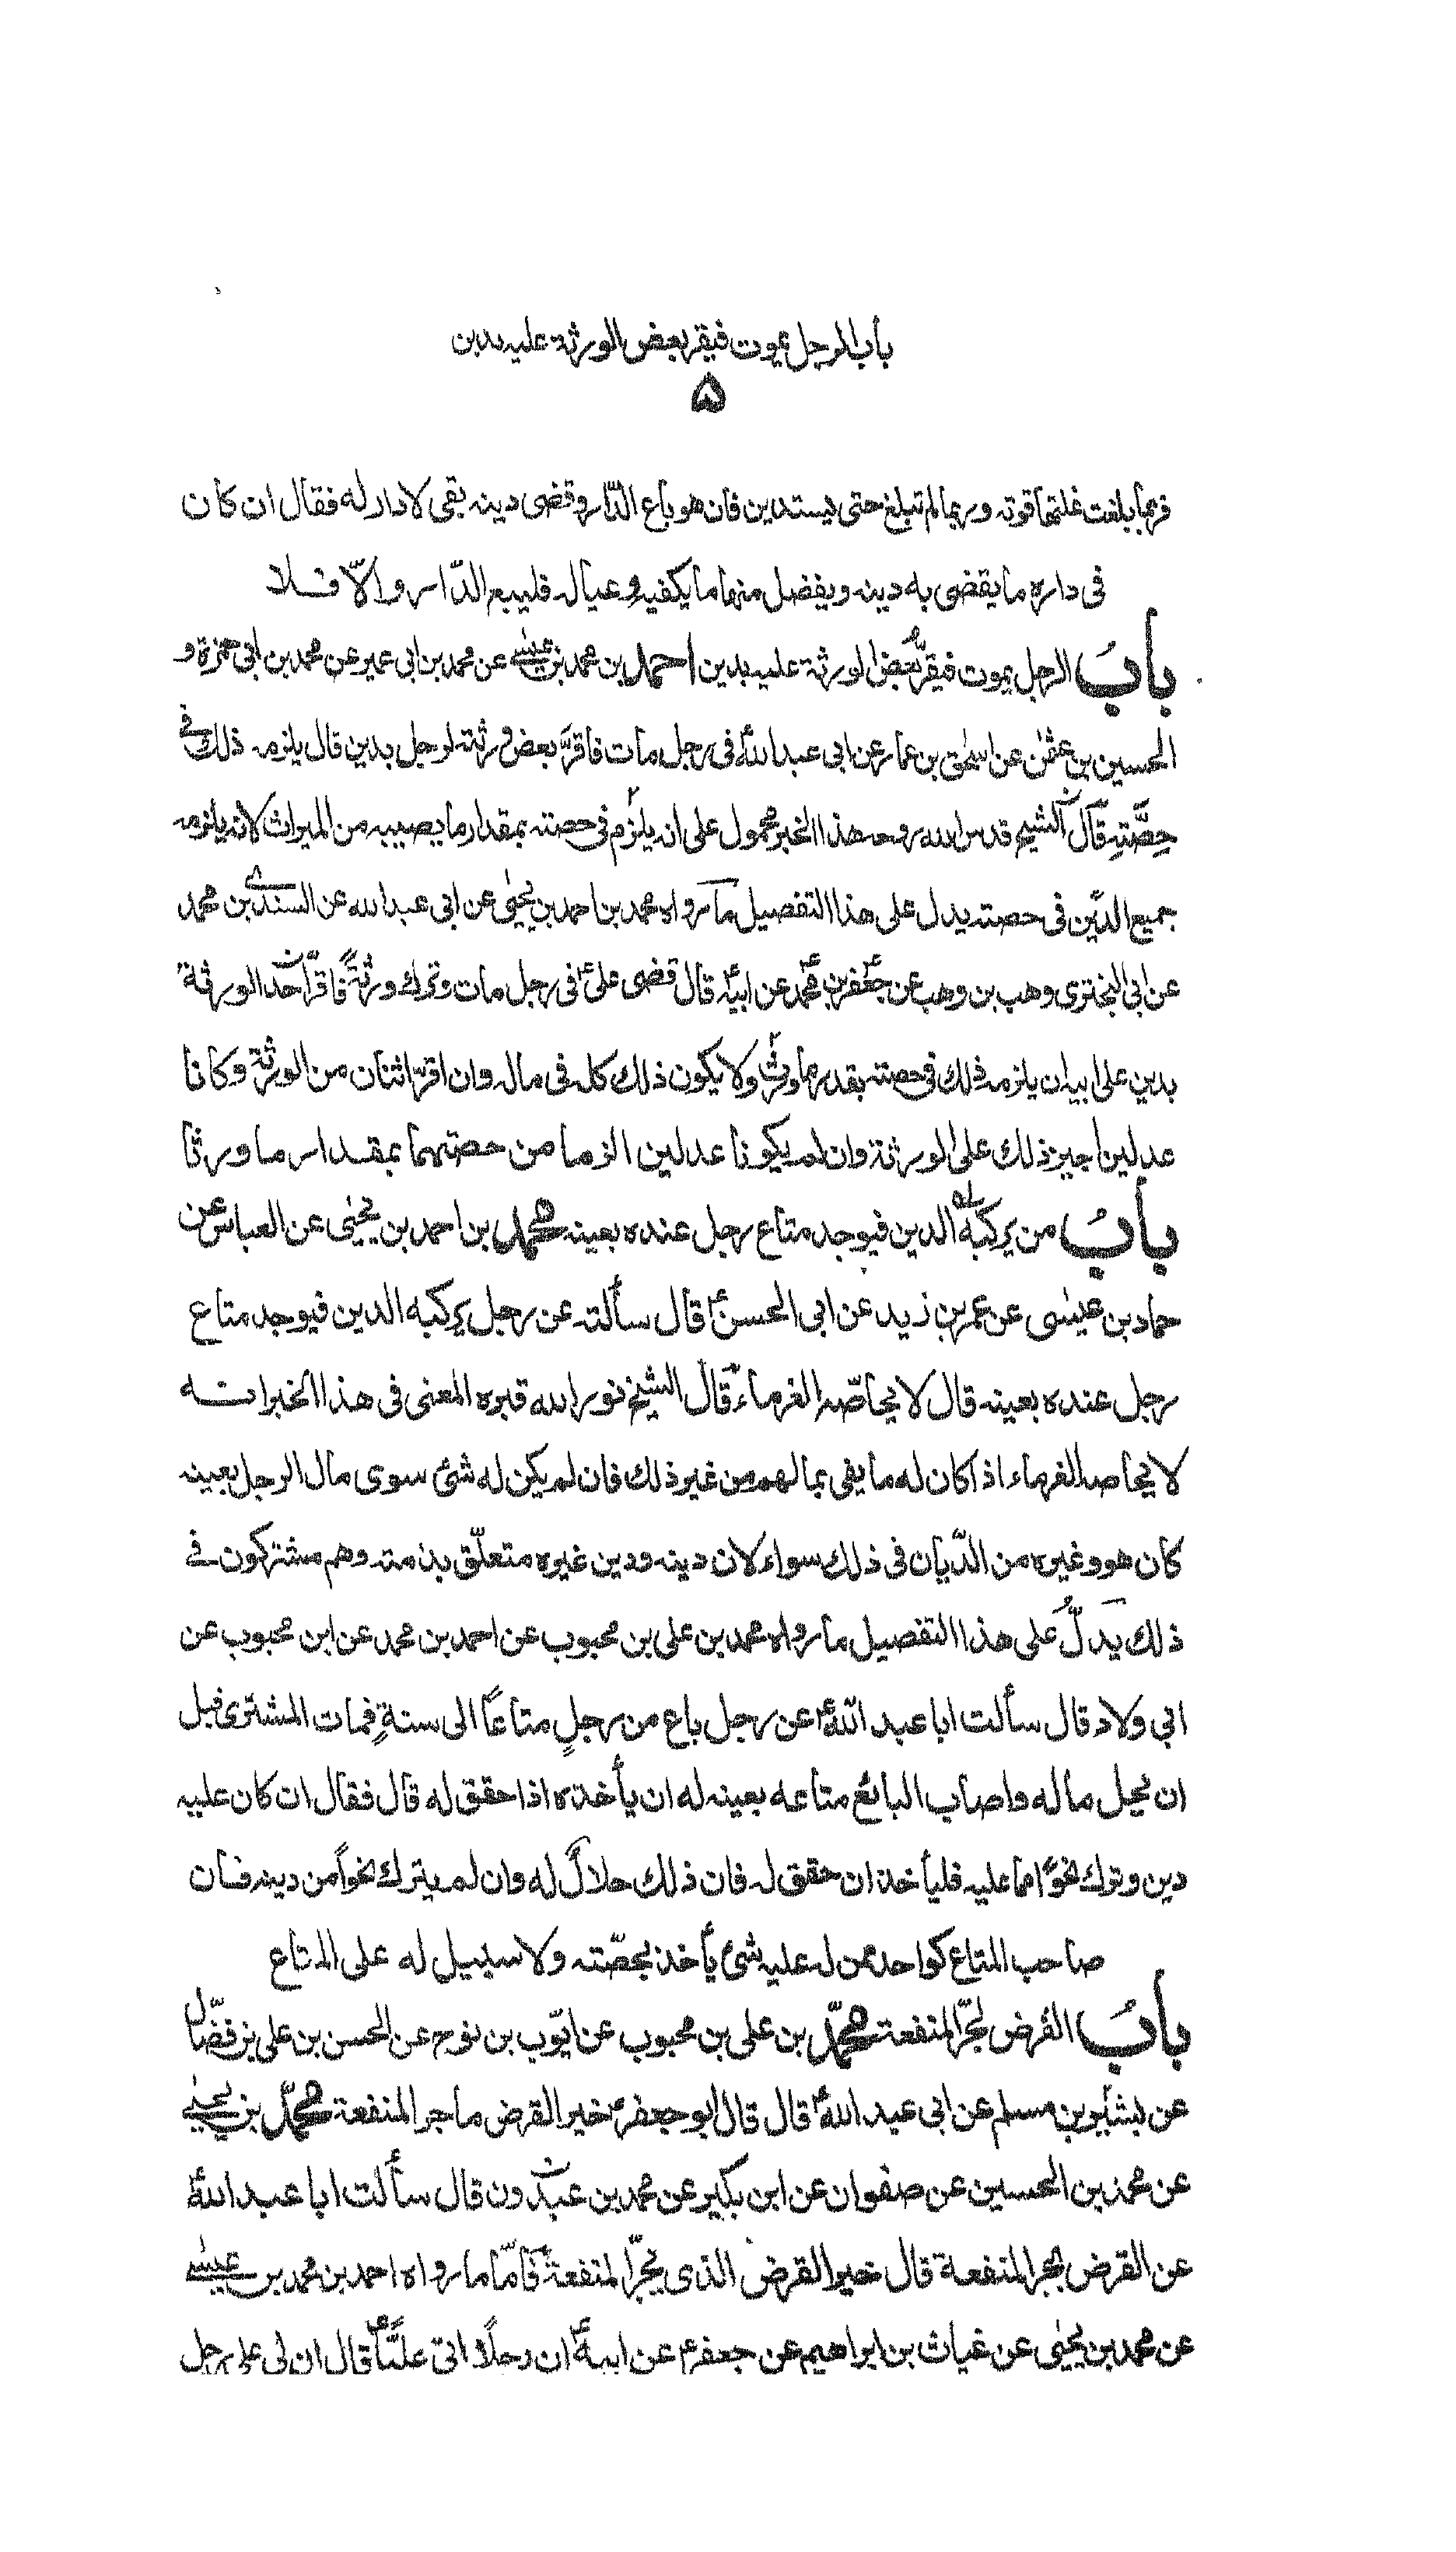 باب الرجل يموت فيقر بعض الورثة عليه بدين
۵
فربما بلغت غلتها قوته وربما لم تبلغ حتى يستدين فان هو باع الدّار وقضى دينه بقى لا دار له فقال ان كان
فى داره ما يقضى به دينه ويفضل منها ما يكفيه وعياله فليبع الدّار والّا فلا
بابُ الرجل يموت فيقرّ بعض الورثة عليه بدين احمد بن محمد بن عيسى عن محمد بن ابى عمير عن محمد بن ابى حمزة و
الحسين بن عثمن عن اسحق بن عمار عن ابى عبد اللهؑ فى رجل مات فاقرّ بعض ورثته لرجل بدين قال يلزمه ذلك فى
حِصّتِهِ قال الشيخ قدس الله روحه هذا الخبر محمول على انه يلزم فى حصته بمقدار ما يصيبه من الميراث لا انه يلزمه
جميع الدّين فى حصته يدل على هذا التفصيل ما رواه محمد بن احمد بن يحيٰى عن ابى عبد الله عن السندى بن محمد
عن ابى البخترى وهب بن وهب عن جعفرؑ بن محمدؑ عن ابيهؑ قال قضى علىؑ فى رجل مات وترك ورثةً فاقرّ احد الورثة
بدين على ابيه ان يلزمه ذلك فى حصته بقدر ما ورث ولا يكون ذلك كله فى ماله وان اقرّ اثنان من الورثة وكانا
عدلين اجيز ذلك على الورثة وان لم يكونا عدلين الزما من حصتهما بمقدار ما ورثا
بابُ من يركبه الدين فيوجد متاع رجل عنده بعينه محمد بن احمد بن يحيٰى عن العباس عن
حماد بن عيسٰى عن عمر بن زيد عن ابى الحسنؑ قال سألته عن رجل يركبه الدين فيوجد متاع
رجل عنده بعينه قال لا يحاصّه الغرماء قال الشيخ نور الله قبره المعنى فى هذا الخبر انه
لا يحاصه الغرماء اذا كان له ما يفى بما لهم من غير ذلك فان لم يكن له شئ سوى مال الرجل بعينه
كان هو وغيره من الدّيان فى ذلك سواء لان دينه ودين غيره متعلّق بذمته وهم مشتركون فى
ذلك يدلّ على هذا التفصيل ما رواه محمد بن على بن محبوب عن احمد بن محمد عن ابن محبوب عن
ابى ولاد قال سألت ابا عبد اللهؑ عن رجل باع من رجلٍ متاعًا الى سنةٍ فمات المشترى قبل
ان يحل ماله واصاب البائع متاعه بعينه له ان يأخذه اذا حقق له قال فقال ان كان عليه
دين وترك نحوًا مما عليه فليأخذ ان حقق له فان ذلك حلالٌ له وان لم يترك نحوًا من دينه فان
صاحب المتاع كواحد ممن له عليه شئ يأخذ بحصّته ولا سبيل له على المتاع
بابُ القرض لجرّ المنفعة محمّد بن على بن محبوب عن ايّوب بن نوح عن الحسن بن على بن فضّال
عن بشير بن مسلم عن ابى عبد اللهؑ قال قال ابو جعفرؑ خير القرض ما جر المنفعة محمّد بن يحيٰى
عن محمد بن الحسين عن صفوان عن ابن بكير عن محمد بن عبدون قال سألت ابا عبد اللهؑ
عن القرض لجر المنفعة قال خير القرض الذى يجرّ المنفعة فامّا ما رواه احمد بن محمد بن عيسٰى
عن محمد بن يحيٰى عن غياث بن ابراهيم عن جعفرؑ عن ابيهؑ ان رجلًا اتى عليًّاؑ قال ان لى على رجل